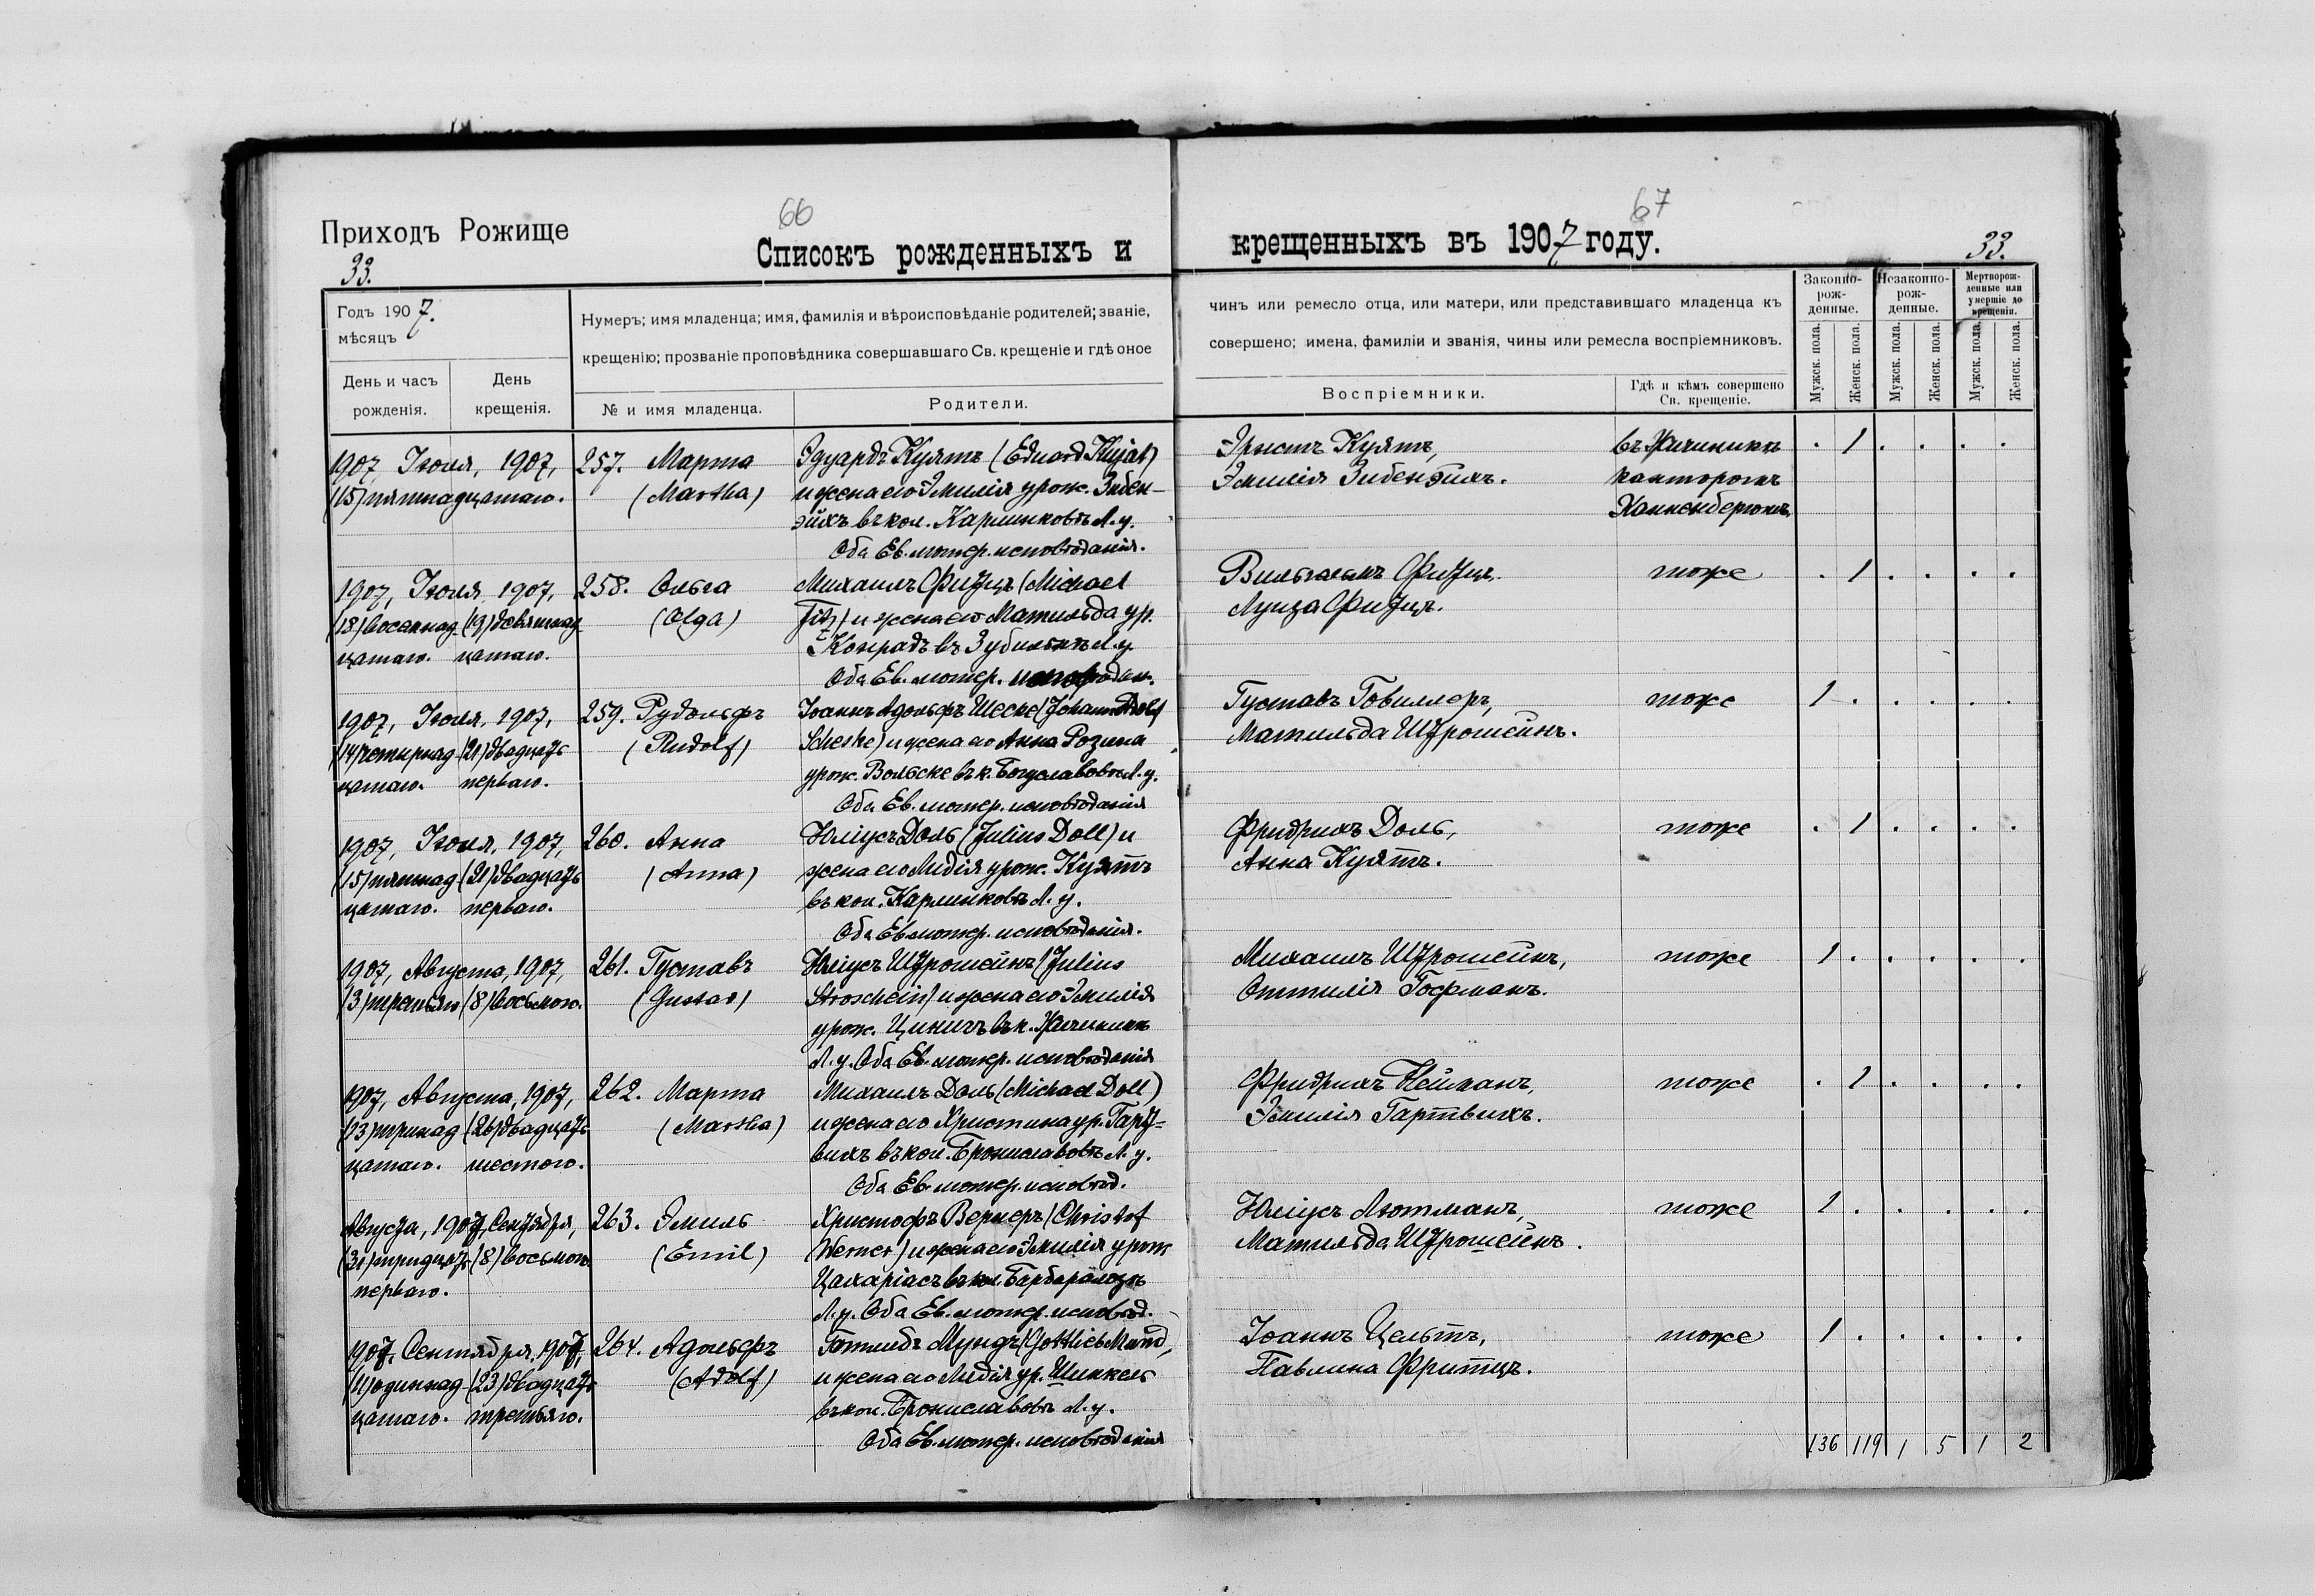 66
67
Приходъ Рожище
33.
Списокъ рожденныхъ и
крещенныхъ въ 1907 году.
33.
Годъ 1907.
мѣсяцъ
День и часъ рожденія.
День крещенія.
Нумеръ; имя младенца; имя, фамилія и вѣроисповѣданіе родителей; званіе,
крещенію; прозваніе проповѣдника совершавшаго Св. крещеніе и гдѣ оное
№ и имя младенца.
Родители.
чинъ или ремесло отца, или матери, или представившаго младенца къ
совершено; имена, фамиліи и званія, чины или ремесла воспріемниковъ.
Воспріемники.
Гдѣ и кѣмъ совершено
Св. крещеніе.
Законно-
рож-
денные.
Незаконно-
рож-
денные.
Мертворож-
денные или
умершіе до
крещенія.
Мужск. пола.
Женск. пола.
Мужск. пола.
Женск. пола.
Мужск. пола.
Женск. пола.
1907, Іюля, 1907, 257. Марта Эдуардъ Куятъ (Eduard Kujat) Эрнстъ Куятъ, 1
(15) пятнадцатаго. (Martha) и жена его Эмилія урож. Зибен- Эмилія Зибенэйхъ. канторомъ
эйхъ въ кол. Карлинковъ Л. у. Конненбергомъ.
Оба Ев. лютер. исповѣданія.
1907, Іюля 1907, 258. Ольга Михаилъ Фитцъ (Michael Вильгельмъ Фитцъ. тоже 1
(18) восемнад- (19) девятнад- (Olga) Fitz) и жена его Матильда ур. Луиза Фитцъ.
цатаго. цатаго. Конрадъ въ Л. у.
Оба Ев. лютер. исповѣдан.
1907, Іюля, 1907, 259. Рудольфъ Іоаннъ Адольфъ Шеске (Johann Adolf Густавъ Говиллеръ, тоже 1
(14) четырнад- (21) двадцать (Rudolf) Scheske) и жена его Анна Розина Матильда Штрошейнъ.
цатаго. перваго. урож. Вольске въ к. Богуславовкѣ Л. у.
Оба Ев. лютер. исповѣданія
1907, Іюля, 1907, 260. Анна Юліусъ Доль (Julius Doll) и Фридрихъ Доль, тоже 1
(15) пятнад- (21) двадцать (Anna) жена его Лидія урож. Куятъ Анна Куятъ.
цатаго. перваго. въ кол. Карлинковъ Л. у.
Оба Ев. лютер. исповѣданія.
1907, Августа, 1907, 261. Густавъ Юліусъ Штрошейнъ (Julius Михаилъ Штрошейнъ, тоже 1
(3) третьяго (8) восьмого. (Gustav) Stroschein) и жена его Эмилія Оттилія Гофманъ.
урож.
Л. у. Оба Ев. лютер. исповѣданія
1907, Августа, 1907, 262. Марта Михаилъ Доль (Michael Doll) Фридрихъ Нейманъ, тоже 1
(13) тринад (26) двадцать (Martha) и жена его Христина ур. Гарт- Эмилія Гартвихъ.
цатаго. шестого. вихъ въ кол. Брониславовкѣ Л. у.
Оба Ев. лютер. исповѣд.
Августа, 1907, Сентября, 263. Эмиль Христофъ Вернеръ (Christof Юліусъ Лютманъ, тоже 1
(31) тридцать (8) восьмого (Emil) Werner) и жена его Эмилія урож Матильда Штрошейнъ.
перваго. Цахаріасъ въ кол.
Л. у. Оба Ев. лютер. исповѣд.
1907, Сентября, 1907, 264. Адольфъ Готлибъ Мундъ (Gottlieb Mund, Іоаннъ Цельтъ, тоже 1
(11) одиннад- (23) двадцать (Adolf) и жена его Лидія ур. Шинкель Павлина Фритцъ.
цатаго. третьяго. въ кол. Брониславовкѣ Л. у.
Оба Ев. лютер. исповѣданія
136 119 1 5 1 2